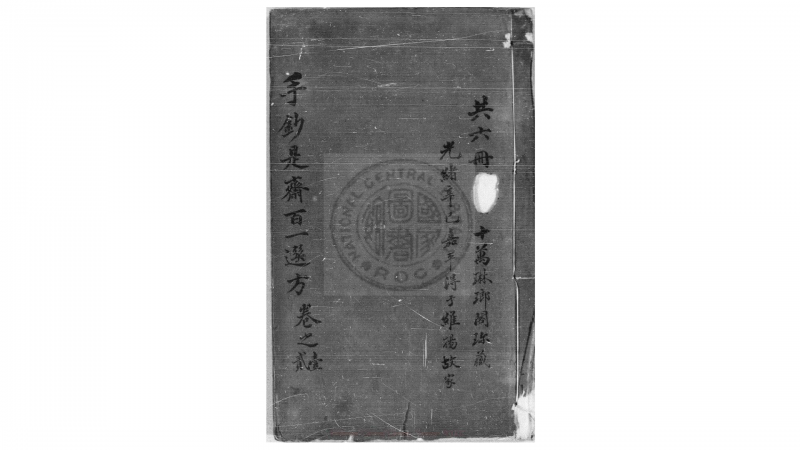 共六冊 十萬琳瑯閣珍藏
光緒辛巳嘉平得于維揚故家
手鈔是齋百一選方 卷之壹貳
NATIONAL CENTRAL
R.O.C.
國家圖書館